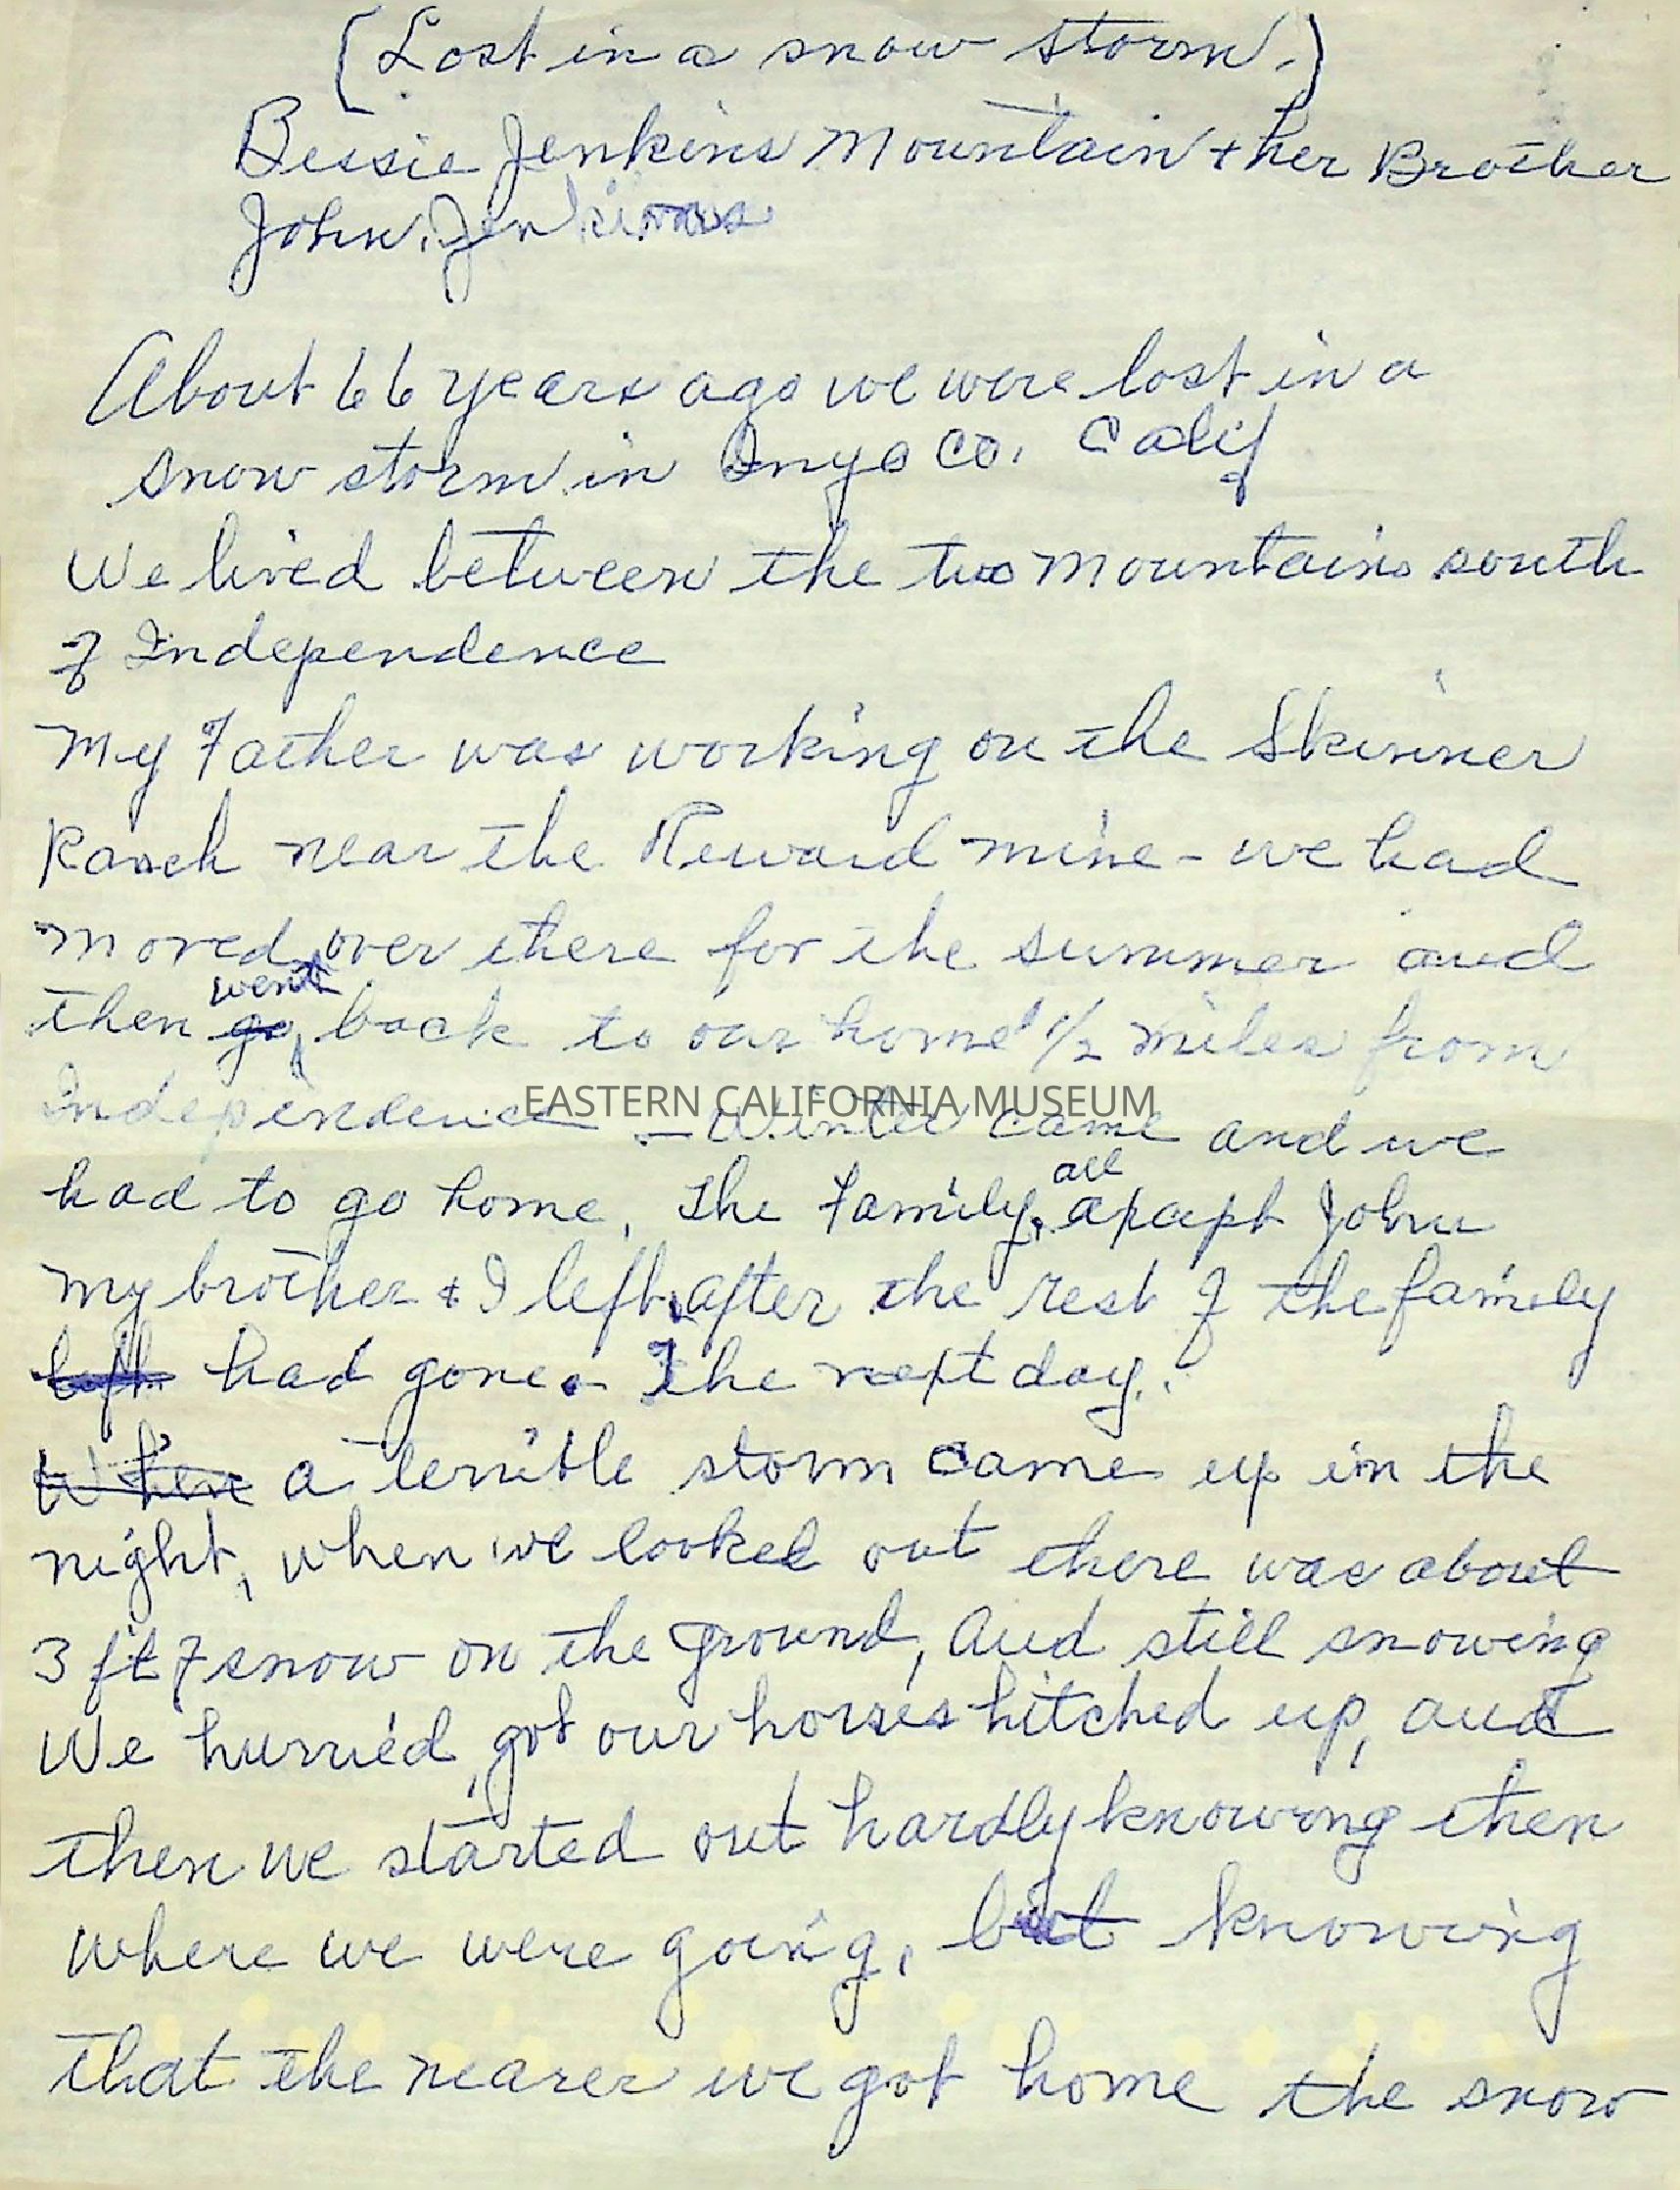 (Lost in a snow storm.)
Bessie Jenkins Mountain + her Brother
John. Jenkins
About 66 years ago we were lost in a
snow storm in Inyo Co. Calif
We lived between the two mountains south
of Independence
My Father was working on the Skinner
Ranch near the Reward mine - we had
moved over there for the summer and
went
then go back to our home 1/2 miles from
Independence - Winter came and we
EASTERN CALIFORNIA MUSEUM
all
had to go home, The Family, apapt John
my brother + I left, after the rest of the family
left had gone. The next day.
When a terrible storm came up in the
night, when we looked out there was about
3 ft of snow on the ground, and still snowing
We hurried, got our horses hitched up, and
then we started out hardly knowing then
where we were going, but knowing
that the nearer we got home the snow